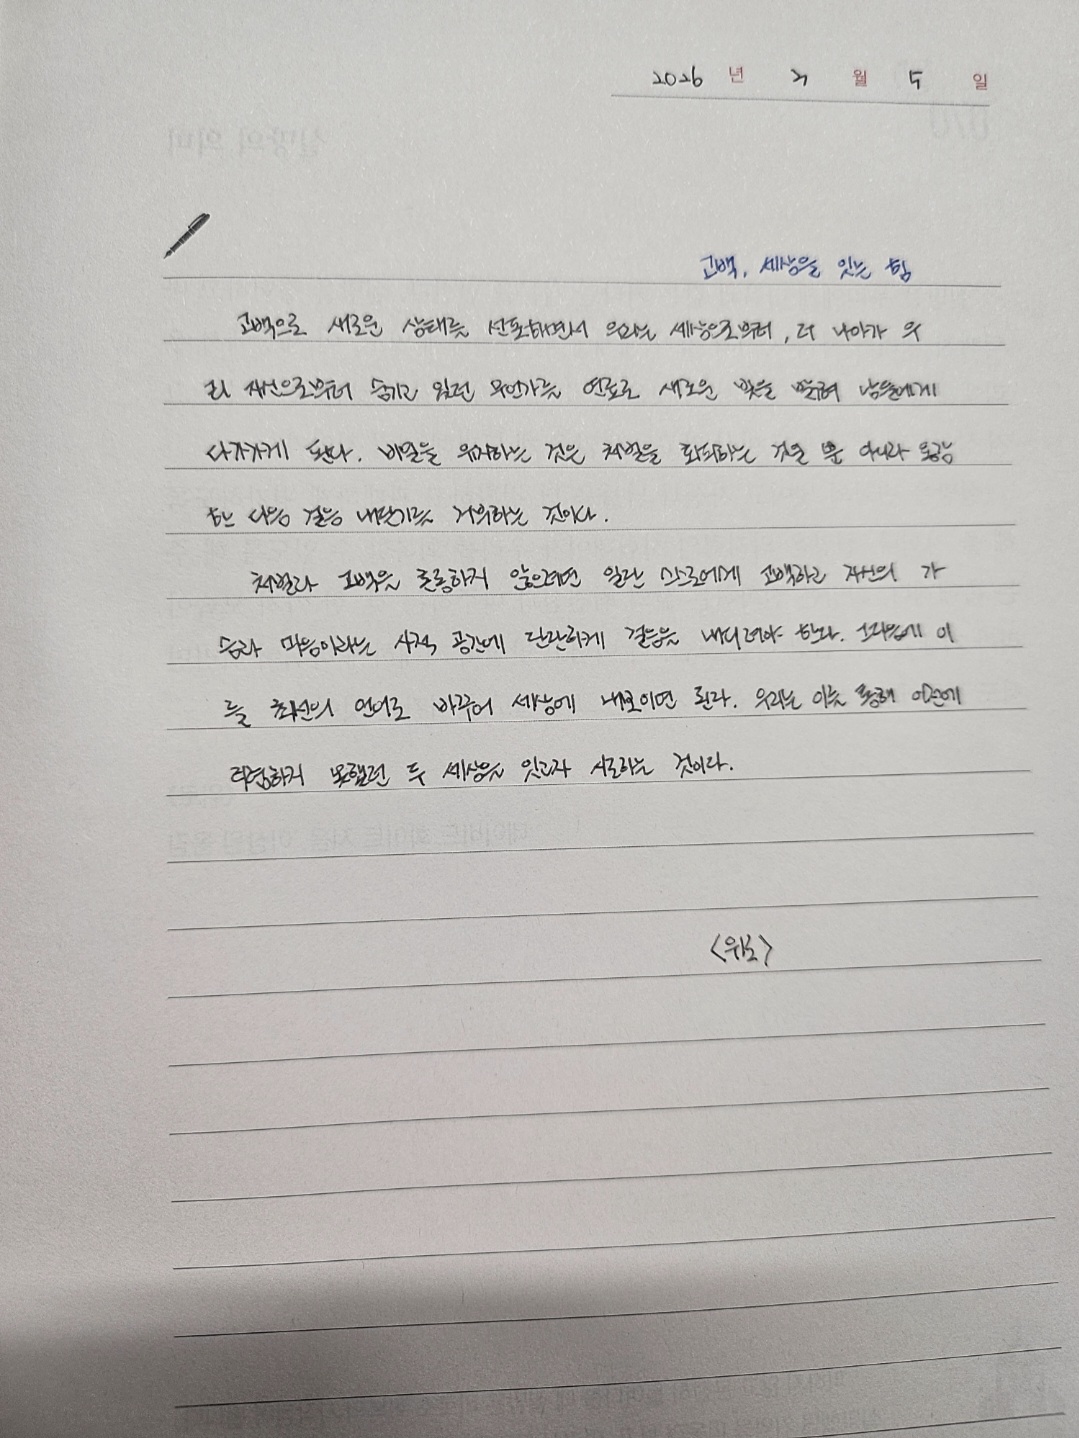 2026 년 2 월 5 일
고백, 세상을 잇는 힘
고백으로 새로운 상태를 선포하면서 우리는 세상으로부터, 더 나아가 우
리 자신으로부터 숨기고 있던 무언가를 연료로 새로운 빛을 밝혀 남들에게
다가가게 된다. 비밀을 유지하는 것은 처벌을 회피하는 것일 뿐 아니라 동등
한 다음 걸음 내딛기를 거부하는 것이다.
처벌과 고백을 혼동하지 않으려면 일단 스스로에게 고백하고 자신의 가
슴과 마음이라는 사적 공간에 단단하게 걸음을 내디뎌야 한다. 그다음에 이
를 최선의 언어로 바꾸어 세상에 내보이면 된다. 우리는 이를 통해 이전에
화합하지 못했던 두 세상을 잇고자 시도하는 것이다.
<위로>